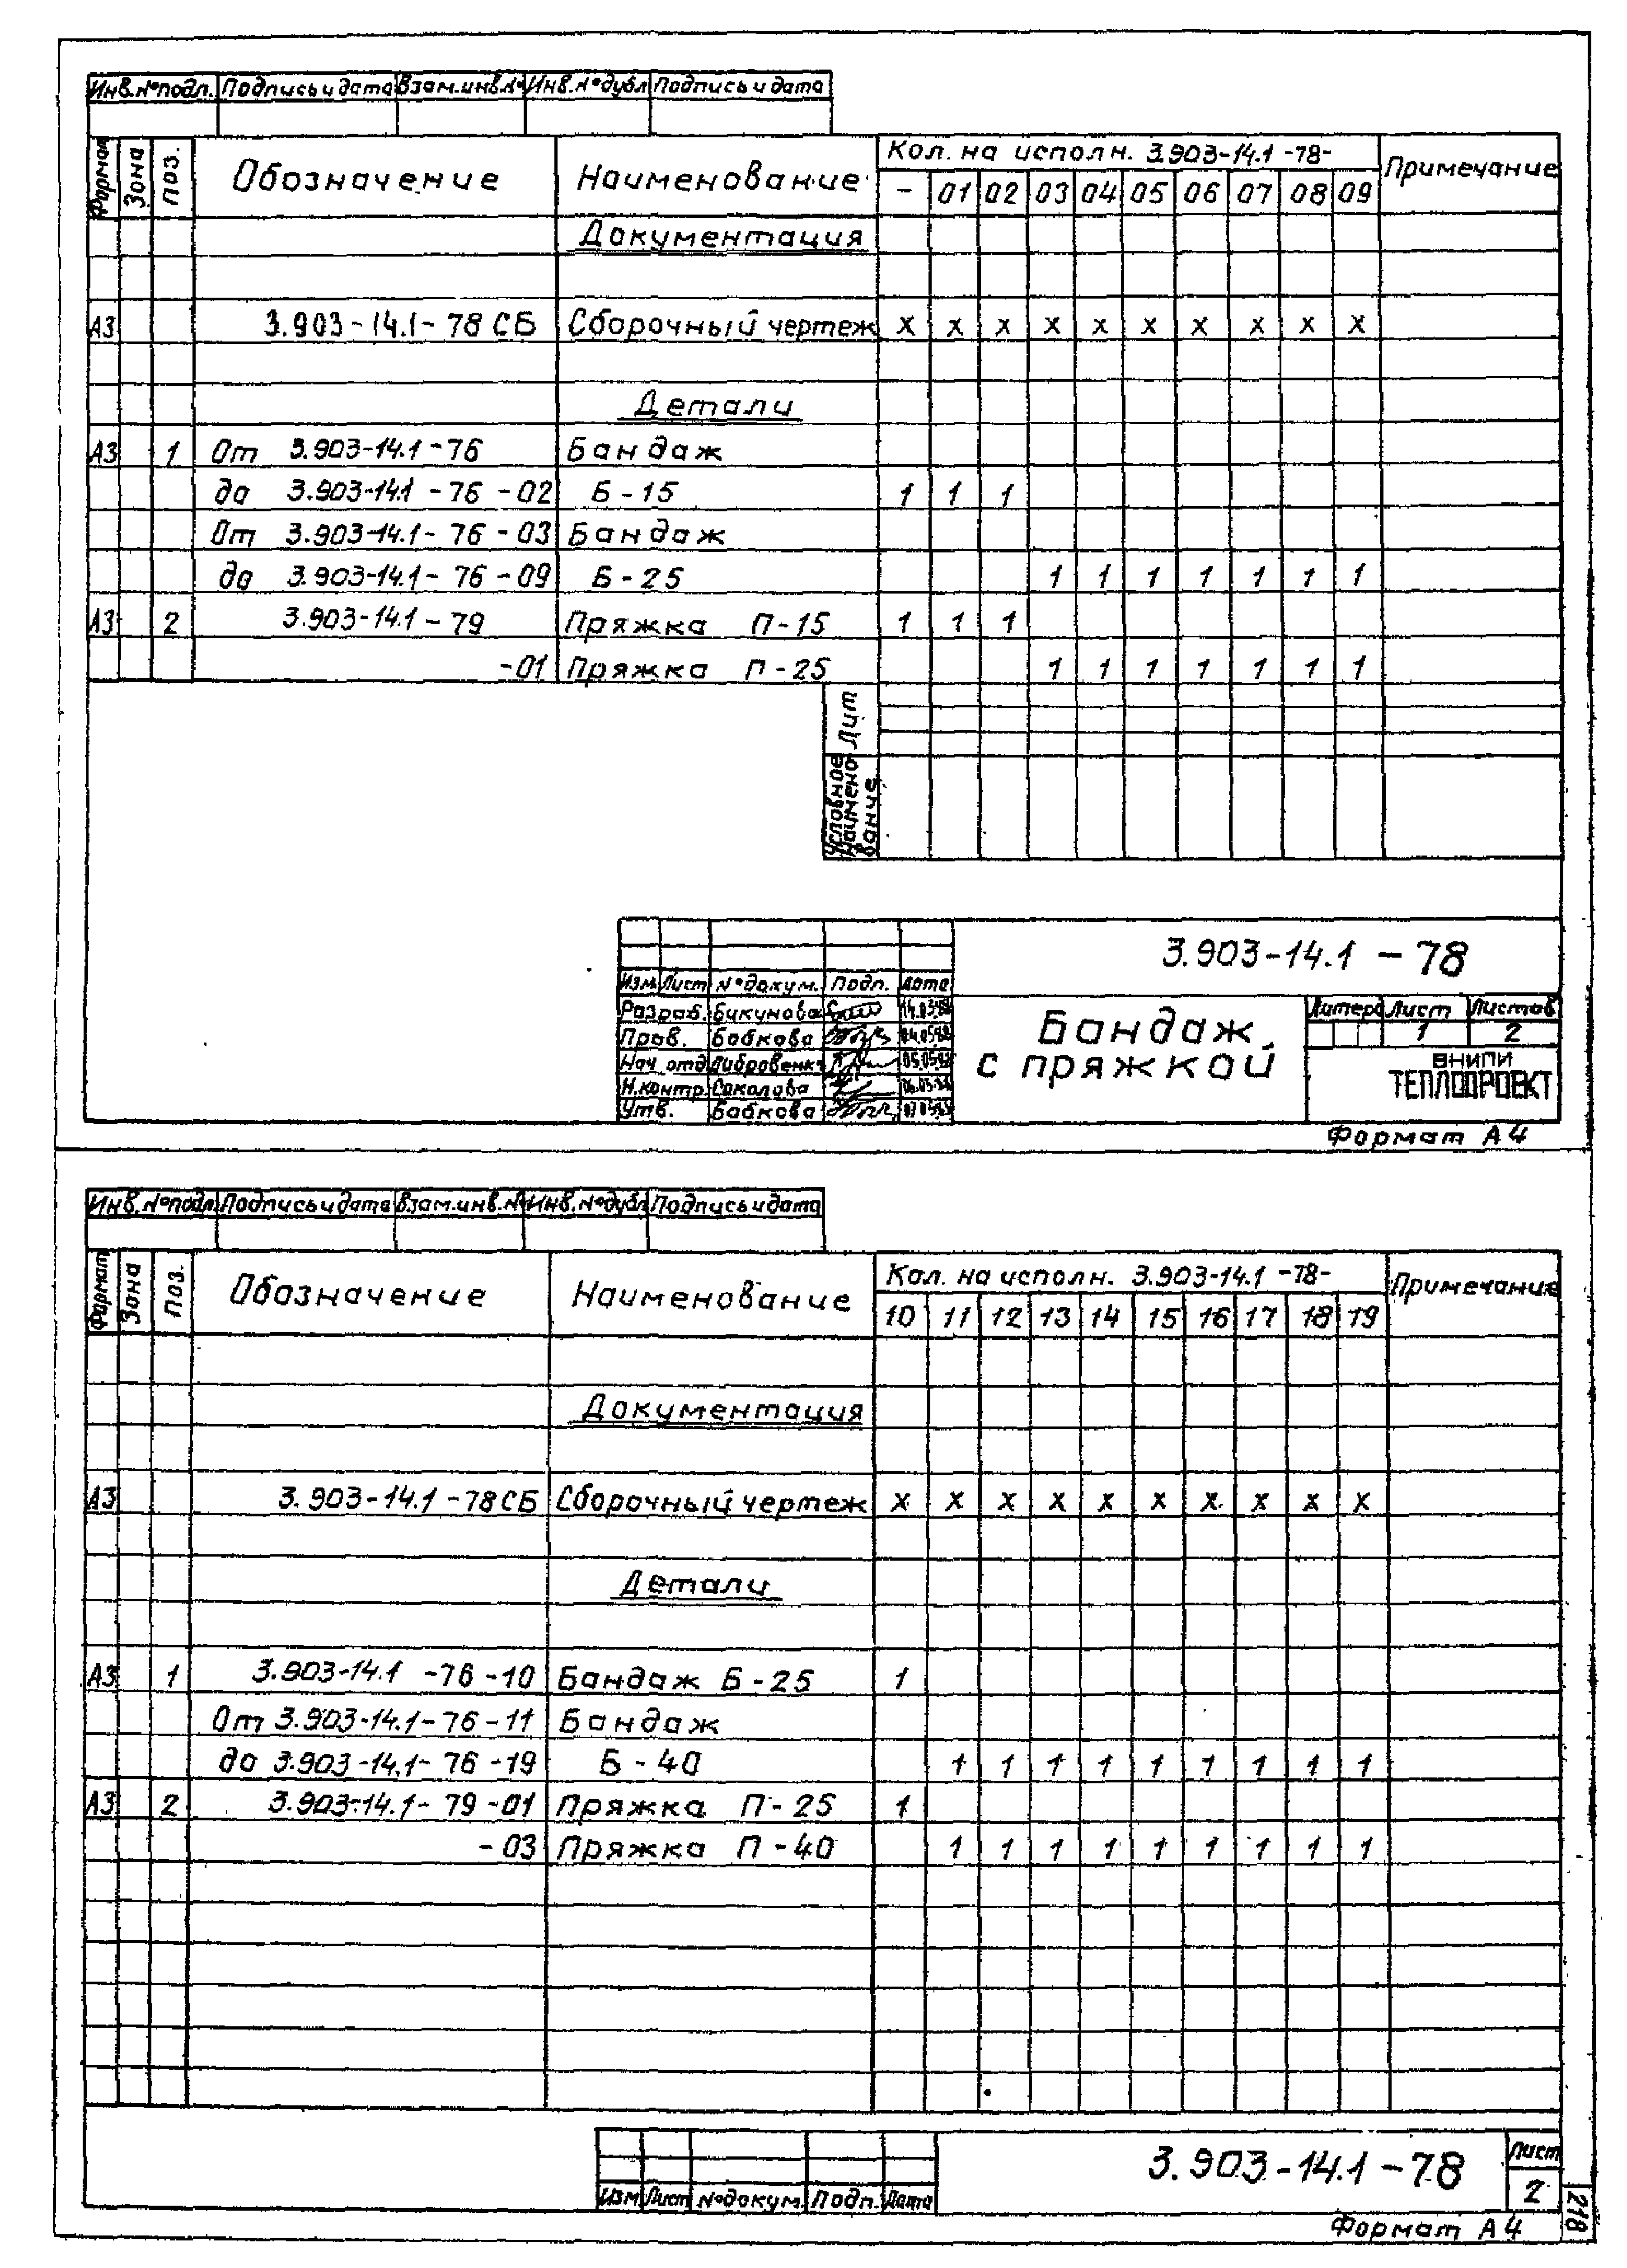 Инв.№подл. Подпись и дата Взам.инв.№ Инв.№дубл Подпись и дата
Формат Зона Поз. Обозначение Наименование Кол. на исполн. 3.903-14.1-78- Примечание
- 01 02 03 04 05 06 07 08 09
Документация
А3 3.903-14.1-78 СБ Сборочный чертеж х х х х х х х х х х
Детали
А3 1 От 3.903-14.1-76 Бандаж
до 3.903-14.1-76-02 Б-15 1 1 1
От 3.903-14.1-76-03 Бандаж
до 3.903-14.1-76-09 Б-25 1 1 1 1 1 1 1
А3 2 3.903-14.1-79 Пряжка П-15 1 1 1
-01 Пряжка П-25 1 1 1 1 1 1 1
Лит
Условное наименование
3.903-14.1-78
Изм Лист №докум. Подп. Дата
Разраб. Бикунова
Пров. Бобкова
Нач.отд
Н.контр. Соколова
Утв. Бобкова
Бандаж
с пряжкой
Литера Лист Листов
1 2
ВНИПИ
ТЕПЛОПРОЕКТ
Формат А4
Инв.№подл. Подпись и дата Взам.инв.№ Инв.№дубл Подпись и дата
Формат Зона Поз. Обозначение Наименование Кол. на исполн. 3.903-14.1-78- Примечание
10 11 12 13 14 15 16 17 18 19
Документация
А3 3.903-14.1-78СБ Сборочный чертеж х х х х х х х х х х
Детали
А3 1 3.903-14.1-76-10 Бандаж Б-25 1
От 3.903-14.1-76-11 Бандаж
до 3.903-14.1-76-19 Б-40 1 1 1 1 1 1 1 1 1
А3 2 3.903-14.1-79-01 Пряжка П-25 1
-03 Пряжка П-40 1 1 1 1 1 1 1 1 1
3.903-14.1-78
Лист
2
Изм Лист №докум. Подп. Дата
Формат А4
218